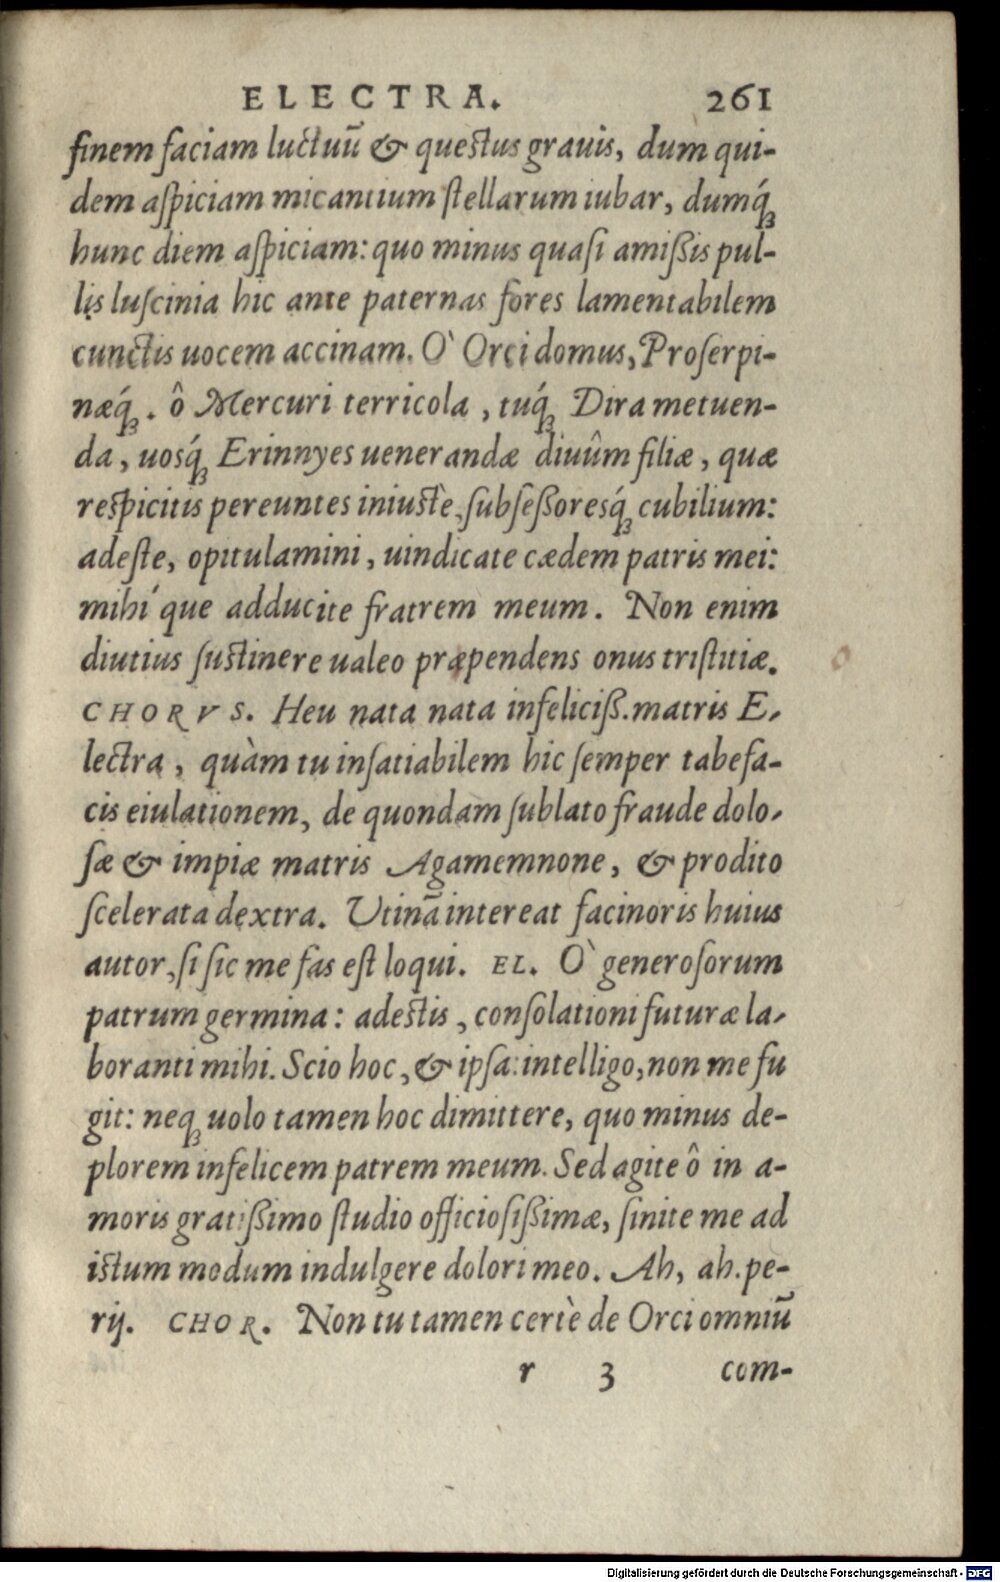 ELECTRA. 261
finem faciam luctuū & questus grauis, dum qui-
dem aſpiciam micantium ſtellarum iubar, dumq́ꝫ
hunc diem aſpiciam: quo minus quaſi amißis pul-
lis luſcinia hic ante paternas fores lamentabilem
cunctis uocem accinam. Ò Orci domus, Proſerpi-
næq́ꝫ. ô Mercuri terricola, tuq́ꝫ Dira metuen-
da, uosq́ꝫ Erinnyes uenerandæ diuûm filiæ, quæ
respicitis pereuntes iniustè, ſubſeßoresq́ꝫ cubilium:
adeſte, opitulamini, uindicate cædem patris mei:
mihíque adducite fratrem meum. Non enim
diutius ſustinere ualeo præpendens onus triſtitiæ.
CHORVS. Heu nata nata infeliciß. matris E-
lectra, quàm tu inſatiabilem hic ſemper tabefa-
cis eiulationem, de quondam ſublato fraude dolo-
ſæ & impiæ matris Agamemnone, & prodito
ſcelerata dextra. Utinā intereat facinoris huius
autor, ſi ſic me fas eſt loqui. EL. Ò generoſorum
patrum germina: adestis, conſolationi futuræ la-
boranti mihi. Scio hoc, & ipſa: intelligo, non me fu
git: neqꝫ uolo tamen hoc dimittere, quo minus de-
plorem infelicem patrem meum. Sed agite ô in a-
moris gratißimo ſtudio officioſißimæ, ſinite me ad
istum modum indulgere dolori meo. Ah, ah. pe-
rij. CHOR. Non tu tamen certè de Orci omniū
r 3 com-
Digitalisierung gefördert durch die Deutsche Forschungsgemeinschaft - DFG